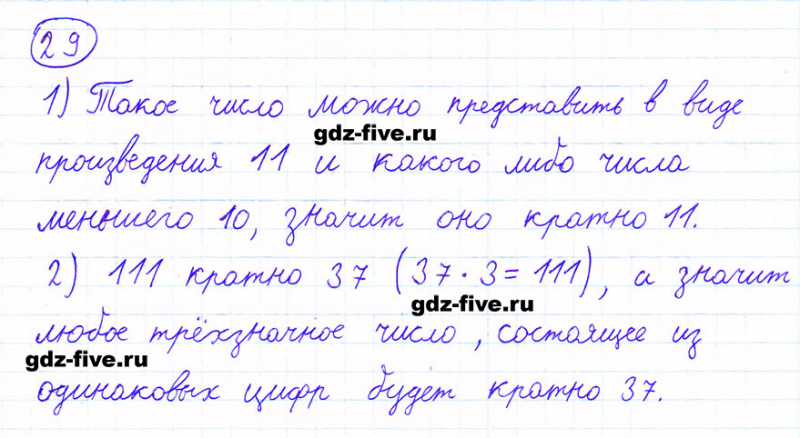 29
1) Такое число можно представить в виде
gdz-five.ru
произведения 11 и какого либо числа
меньшего 10, значит оно кратно 11.
2) 111 кратно 37 (37·3=111), а значит
gdz-five.ru
любое трёхзначное число, состоящее из
gdz-five.ru
одинаковых цифр будет кратно 37.